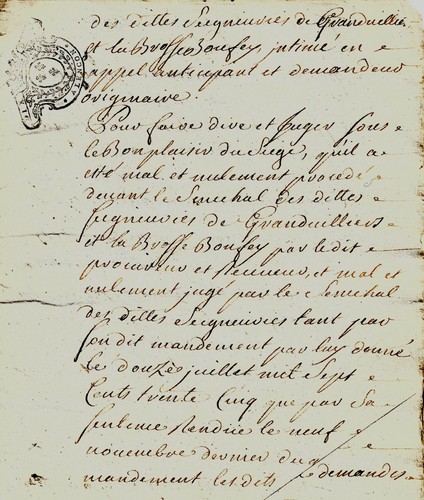 des dittes Seigneuries de Granduilliers
et la Brosse Boufey intimé en
appel anticipant et demandeur
originaire.
Pour faire dire et Juger sous
le Bon plaisir du Siege, qu'il a
été mal et nulement procedé
deuant le Senechal des dittes
seigneuries de Granduilliers
et la Brosse Boufey par ledit
procureur et Receueur, et mal et
nulement jugé par le Senechal
des dittes Seigneuries tant par
son dit mandement par luy donné
le douze juillet mil sept
Cents trente Cinq que par Sa
sentence Rendüe le neuf
nouembre dernier
mandement les dits demandes